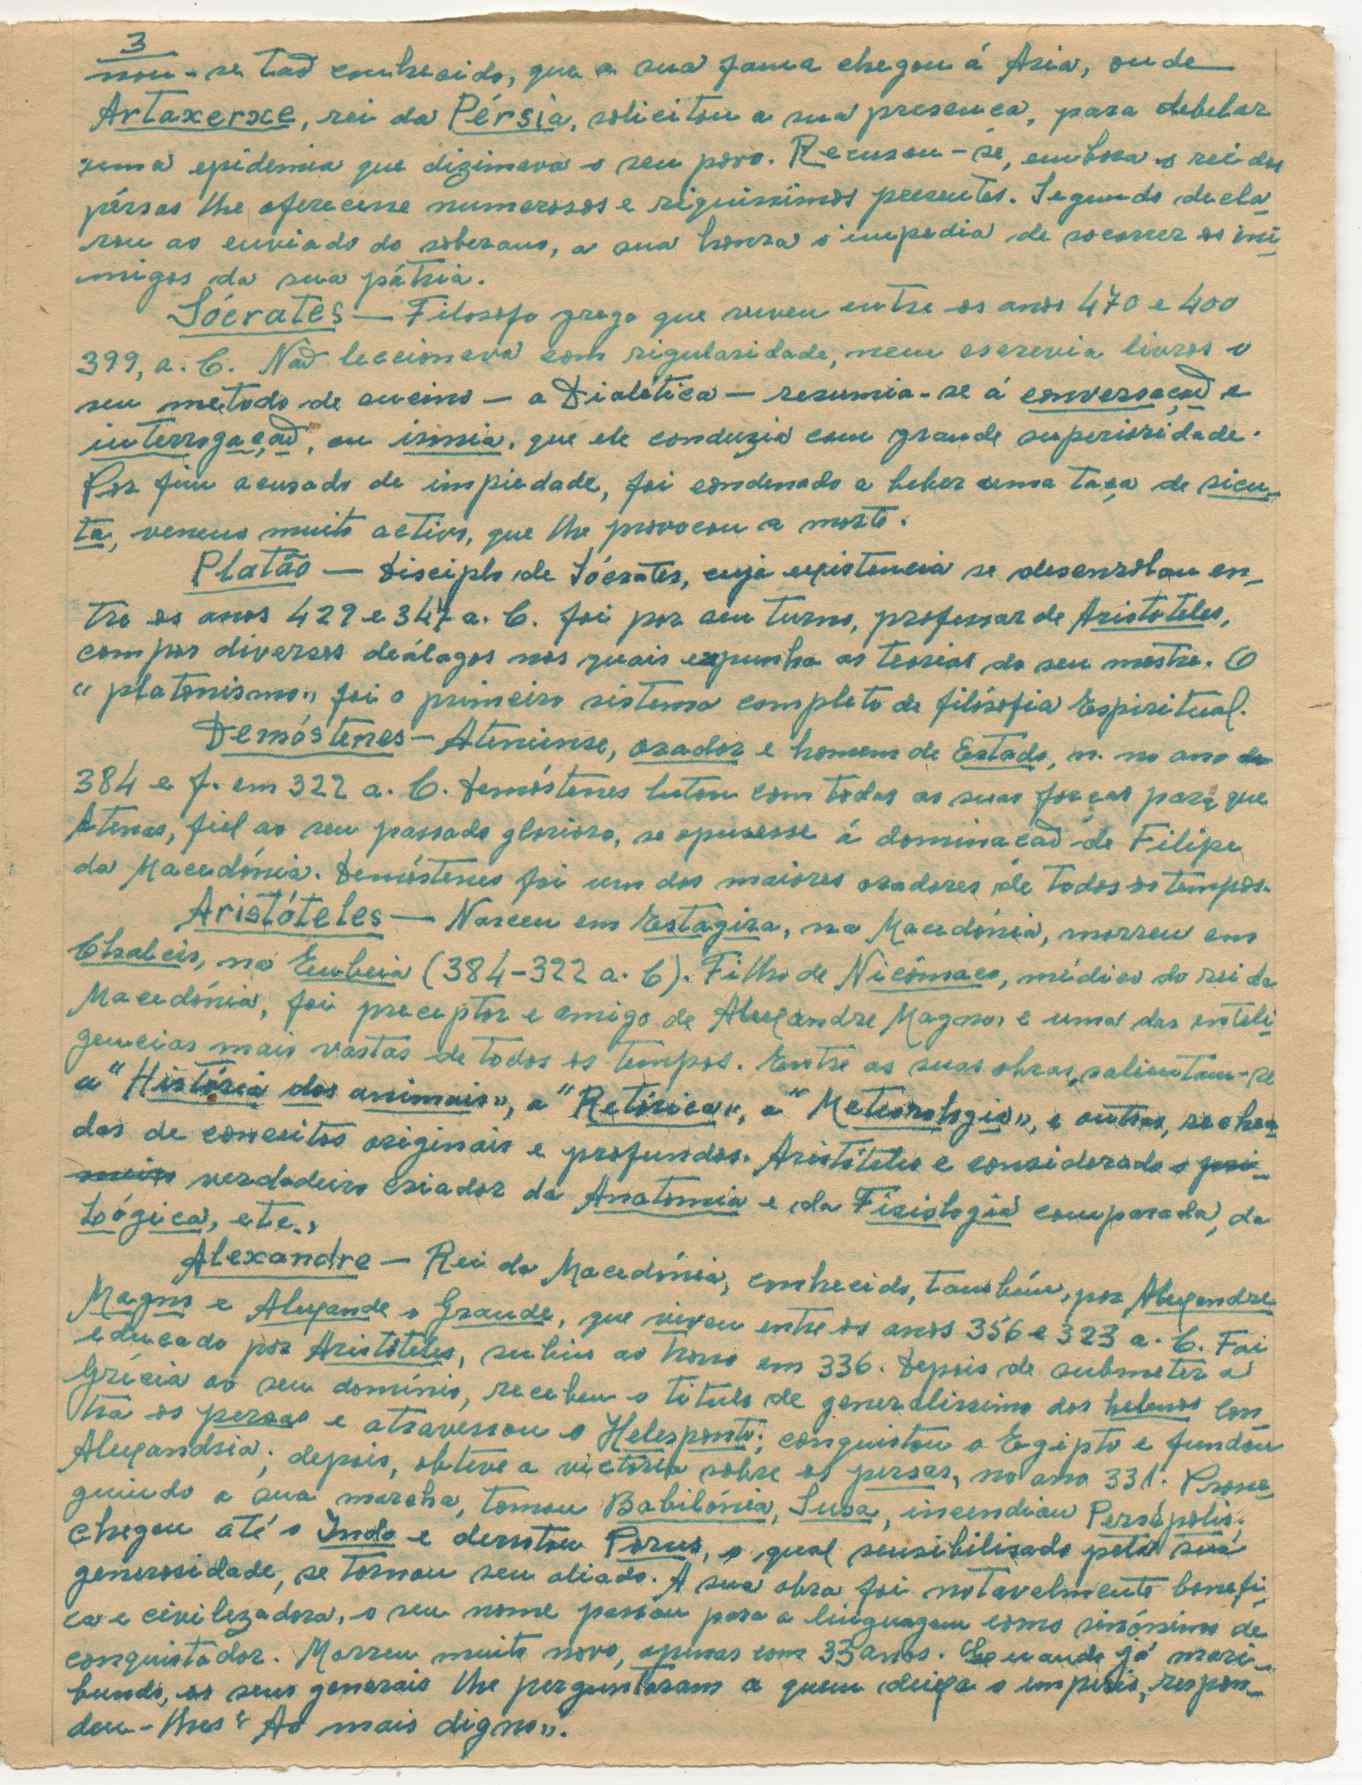 3
nou-se tão conhecido, que a sua fama chegou á Asia, onde
Artaxerxe, rei da Pérsia, solicitou a sua presença, para debelar
uma epidemia que dizimava o seu povo. Recusou-se, embora o rei dos
pérsas lhe oferecesse numerosos e riquissimos presentes. Segundo decla
rou ao enviado do soberano, a sua honra o impedia de socorrer os ini
migos da sua pátria.
Sócrates — Filosofo grego que viveu entre os anos 470 e 400
399, a. C. Não leccionava com rigularidade, nem escrevia livros o
seu metodo de ensino — a Dialética — resumia-se á conversação e
interrogação, ou ironia, que ele conduzia com grande superioridade.
Por fim acusado de impiedade, foi condenado a beber uma taça de sicu-
ta, veneno muito activo, que lhe provocou a morte.
Platão — Discipulo de Sócrates, cuja existencia se desenrolou en-
tre os anos 429 e 347 a. C. foi por seu turno, professor de Aristoteles,
compos diversos deálagos nos quais expunha as teorias do seu mestre. O
"platonismo" foi o primeiro sistema completo de filósofia Espiritual.
Demóstenes — Ateniense, orador e homem de Estado, n. no ano de
384 e f. em 322 a. C. Demóstenes lutou com todas as suas forças para que
Atenas, fiel ao seu passado glorioso, se opusesse á dominação de Filipe
da Macedónia. Demóstenes foi um dos maiores oradores de todos os tempos.
Aristóteles — Nasceu em Estagira, na Macedónia, morreu em
Chalcis, na Eubeia (384-322 a. C). Filho de Nicómaco, médico do rei da
Macedónia, foi preceptor e amigo de Alexandre Magno, e uma das inteli
gencias mais vastas de todos os tempos. Entre as suas obras, salientam-se
a "História dos animais", a "Retórica", a "Meteorologia", e outras, rechea
das de conceitos originais e profundos. Aristóteles e considerado o
verdadeiro criador da Anatomia e da Fisiologia comparada, da
Lógica, etc.,
Alexandre — Rei da Macedónia, conhecido, tambèm, por Alexandre
Magno e Alexande o Grande, que viveu entre os anos 356 e 323 a. C. Foi
educado por Aristóteles, subiu ao trono em 336. Depois de submeter a
Grécia ao seu domínio, recebeu o titulo de generalissimo dos helenos con
tra os persas e atravessou o Helesponto; conquistou o Egipto e fundou
Alexandria; depois, obteve a victoria sobre os persas, no ano 331. Prose-
guindo a sua marcha, tomou Babilónia, Susa, incendiou Persépolis,
chegou até o Indo e derrotou Porus, o qual sensibilisado pela sua
generosidade, se tornou seu aliado. A sua obra foi notavelmente benefi-
ca e civilizadora, o seu nome passou para a linguagem como sinónimo de
conquistador. Morreu muito novo, apenas com 33 anos. Quando já mori-
bundo, os seus generais lhe perguntaram a quem deixa o imperio, respon-
deu-lhes "Ao mais digno".